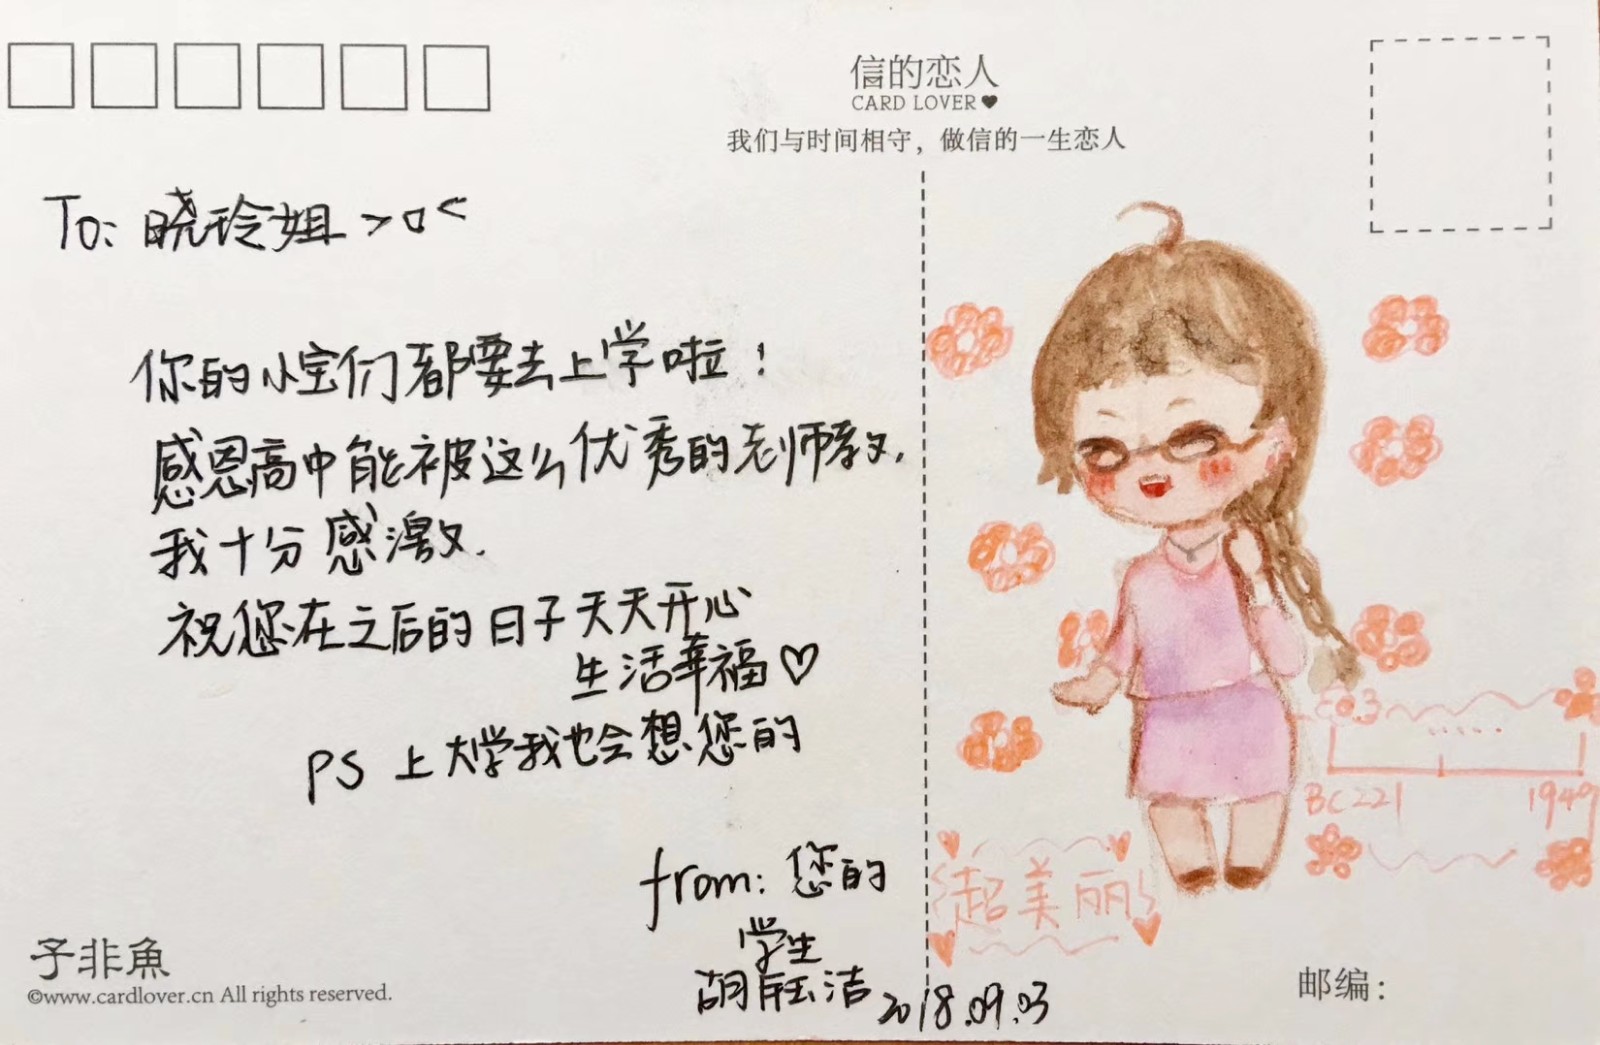 信的恋人
CARD LOVER♥
我们与时间相守，做信的一生恋人
To: 晓玲姐 >o<
你的小宝们都要去上学啦！
感恩高中能被这么优秀的老师教.
我十分感激.
祝您在之后的日子天天开心
生活幸福♡
PS 上大学我也会想您的
from: 您的
学生
胡钰洁
2018.09.03
超美丽
BC221
1949
子非魚
©www.cardlover.cn All rights reserved.
邮编：